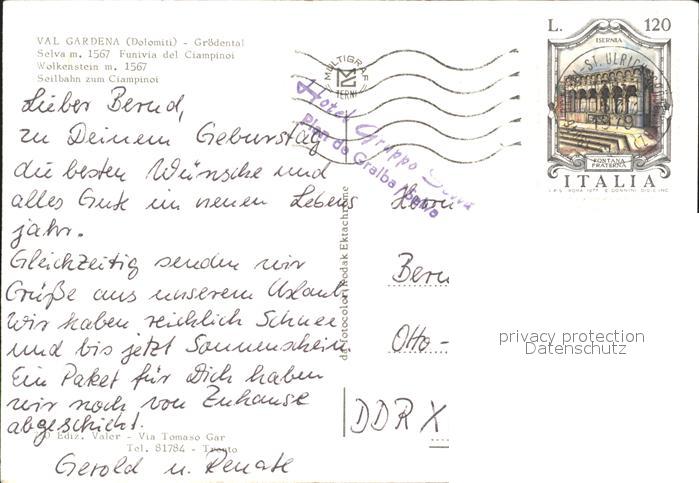 VAL GARDENA (Dolomiti) - Grödental
Selva m. 1567 Funivia del Ciampinoi
Wolkenstein m. 1567
Seilbahn zum Ciampinoi
Lieber Bernd,
zu Deinem Geburstag
die besten Wünsche und
alles Gute im neuen Lebens
jahr.
Gleichzeitig senden wir
Grüße aus unserem Urlaub.
Wir haben reichlich Schnee
und bis jetzt Sonnenschein.
Ein Paket für Dich haben
wir noch von Zuhause
abgeschickt.
Gerold u. Renate
Ediz. Valer - Via Tomaso Gar
Tel. 81784 - Trento
da fotocolor Kodak Ektachrome
MULTIGRAF
TERNI
Hotel Gruppo Sella
Plan de Gralba
L. 120
ISERNIA
ST. ULRICH
1979
FONTANA
FRATERNA
ITALIA
Herrn
Bern
Otto-
DDR X
privacy protection
Datenschutz